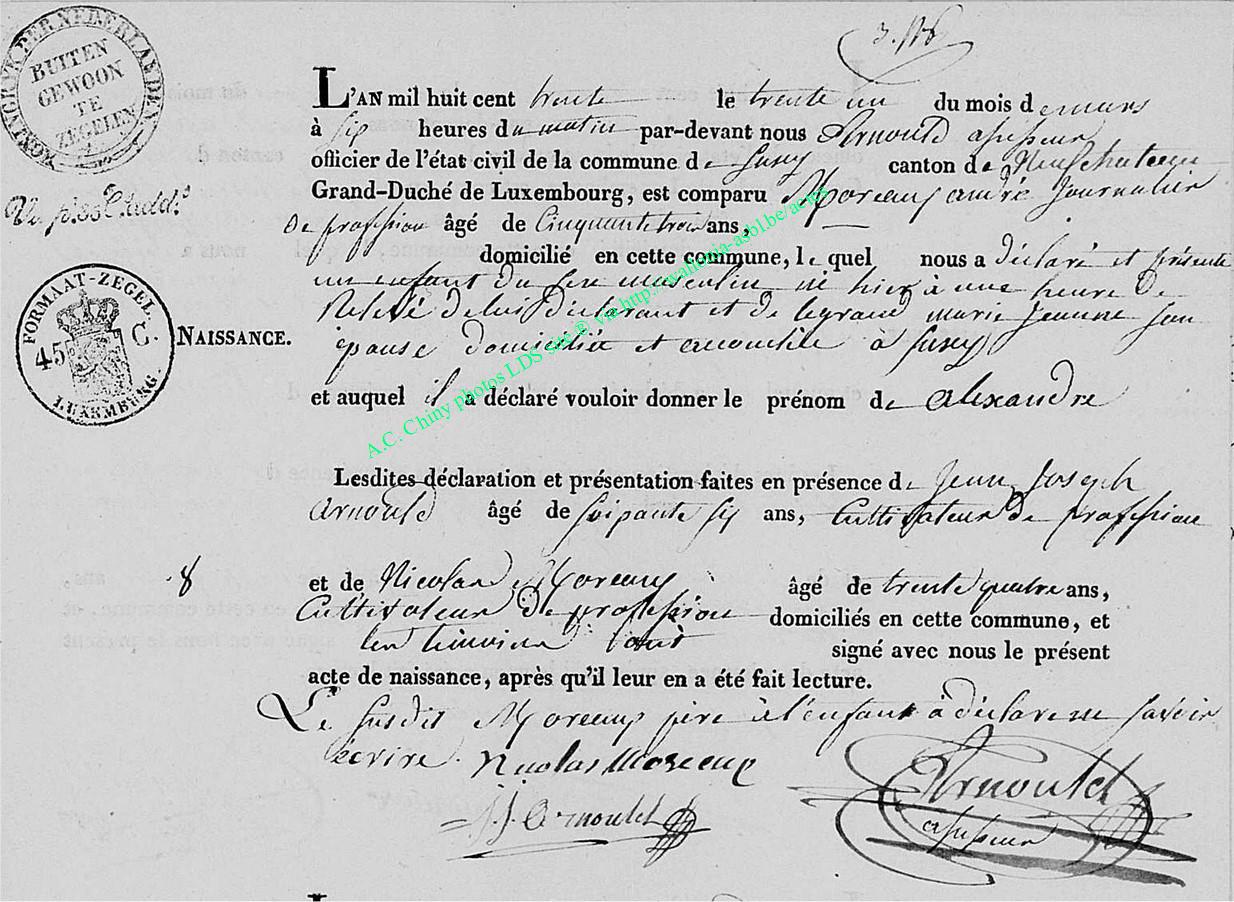 KONINGRYK DER NEDERLANDEN
BUITEN
GEWOON
TE
ZEGELEN
L'AN mil huit cent trente le trente un du mois de mars
à six heures du matin par-devant nous Arnould assesseur
officier de l'état civil de la commune de Suxy canton de Neufchateau
Grand-Duché de Luxembourg, est comparu Moreaux andré Journalier
de profession âgé de Cinquante trois ans,
domicilié en cette commune, lequel nous a déclaré et présenté
FORMAAT-ZEGEL
45 C.
LUXEMBURG.
NAISSANCE.
un enfant du sexe masculin né hier à une heure de
relevé de lui déclarant et de legrand marie Jeanne son
épouse domiciliée et accouchée à Suxy
et auquel il a déclaré vouloir donner le prénom de alexandre
Lesdites déclaration et présentation faites en présence de Jean Joseph
Arnould âgé de soixante six ans, Cultivateur de profession
8
et de Nicolas Moreaux âgé de trente quatre ans,
Cultivateur de profession domiciliés en cette commune, et
les témoins ont signé avec nous le présent
acte de naissance, après qu'il leur en a été fait lecture.
Le susdit Moreaux père à l'enfant à déclare ne savoir
écrire. Nicolas Moreaux
J. J. Arnould
Arnould
assesseur
A.C. Chiny photos LDS sur © via http://wallonia-asbl.be/actes